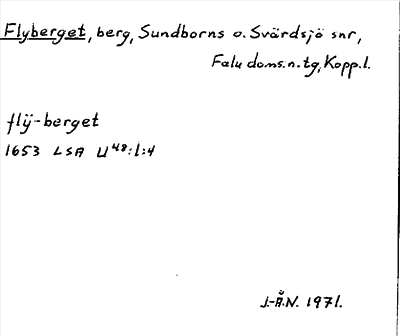 Flyberget, berg, Sundborns o. Svärdsjö snr,
Falu doms.n.tg, Kopp.l.
flÿ-berget
1653 LSA U 48:1:4
J.-Å.N. 1971.